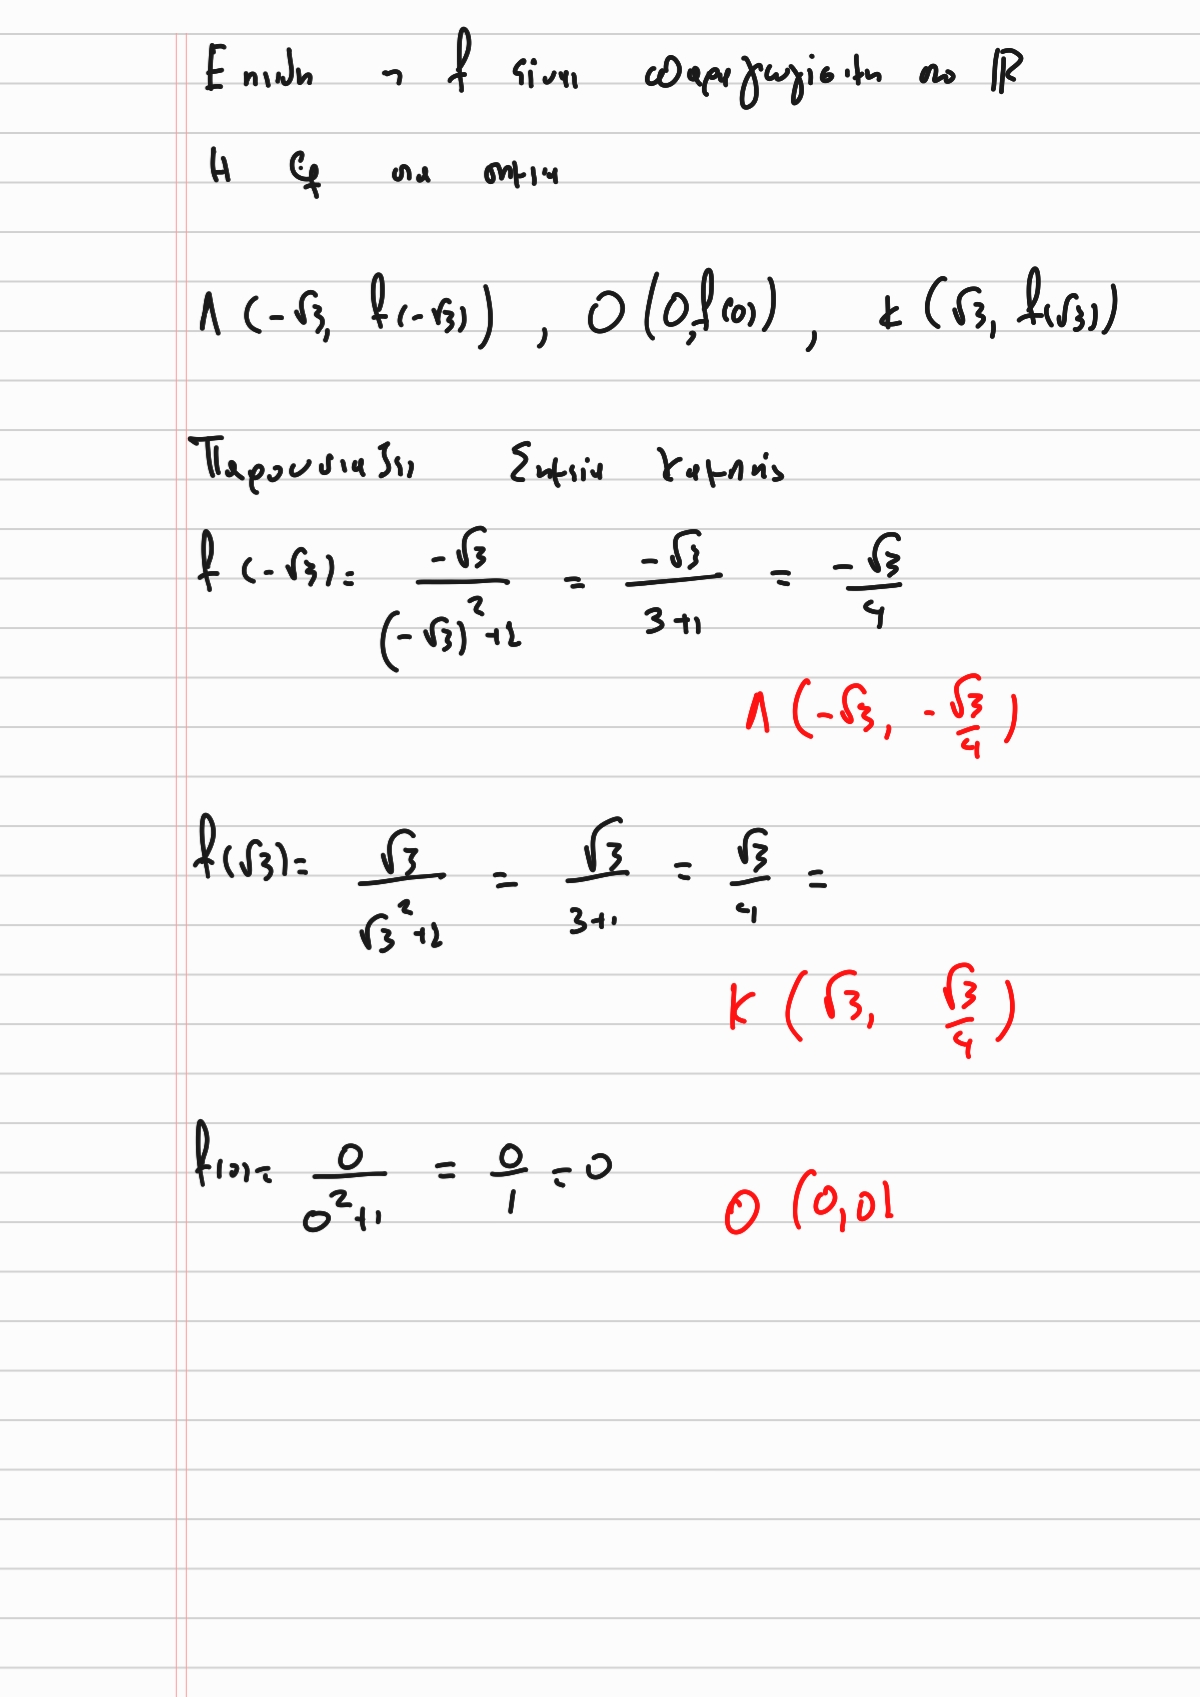 Επειδή η f είναι παραγωγίσιμη στο ℝ
Η Cf στα σημεία
Λ (-√3, f(-√3)) , O (0, f(0)) , K (√3, f(√3))
Παρουσιάζει Σημεία Καμπής
f(-√3) = -√3 / ((-√3)² + 1) = -√3 / (3+1) = -√3/4
Λ (-√3, -√3/4)
f(√3) = √3 / (√3² + 1) = √3 / (3+1) = √3/4 =
K (√3, √3/4)
f(0) = 0 / (0² + 1) = 0/1 = 0
O (0,0)